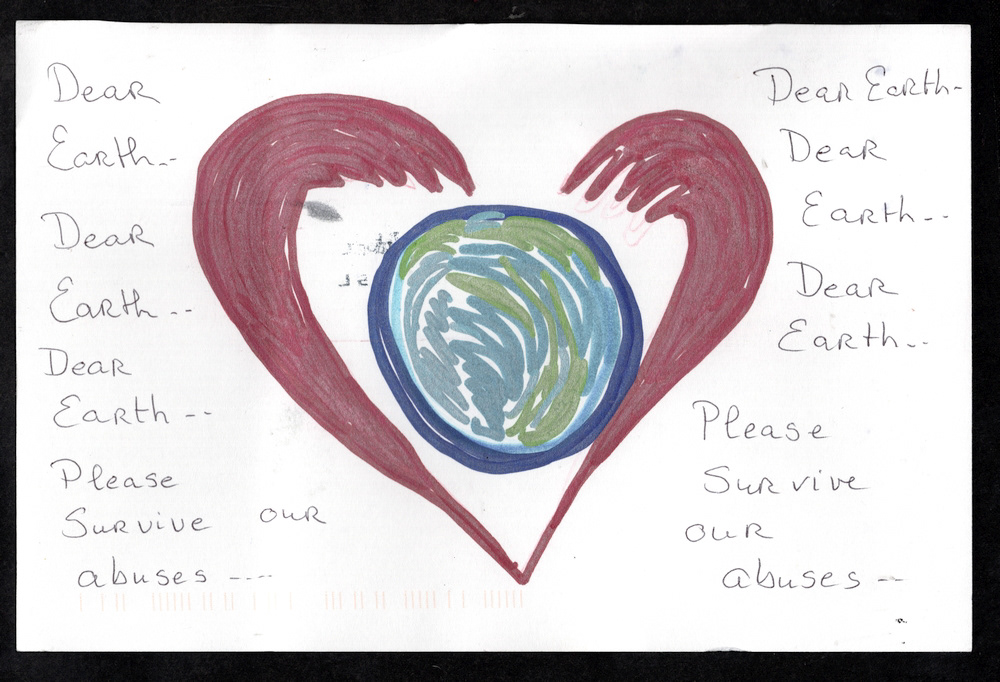 Dear
Earth--
Dear
Earth--
Dear
Earth--
Please
Survive our
abuses ----
Dear Earth-
Dear
Earth--
Dear
Earth--
Please
Survive
our
abuses--